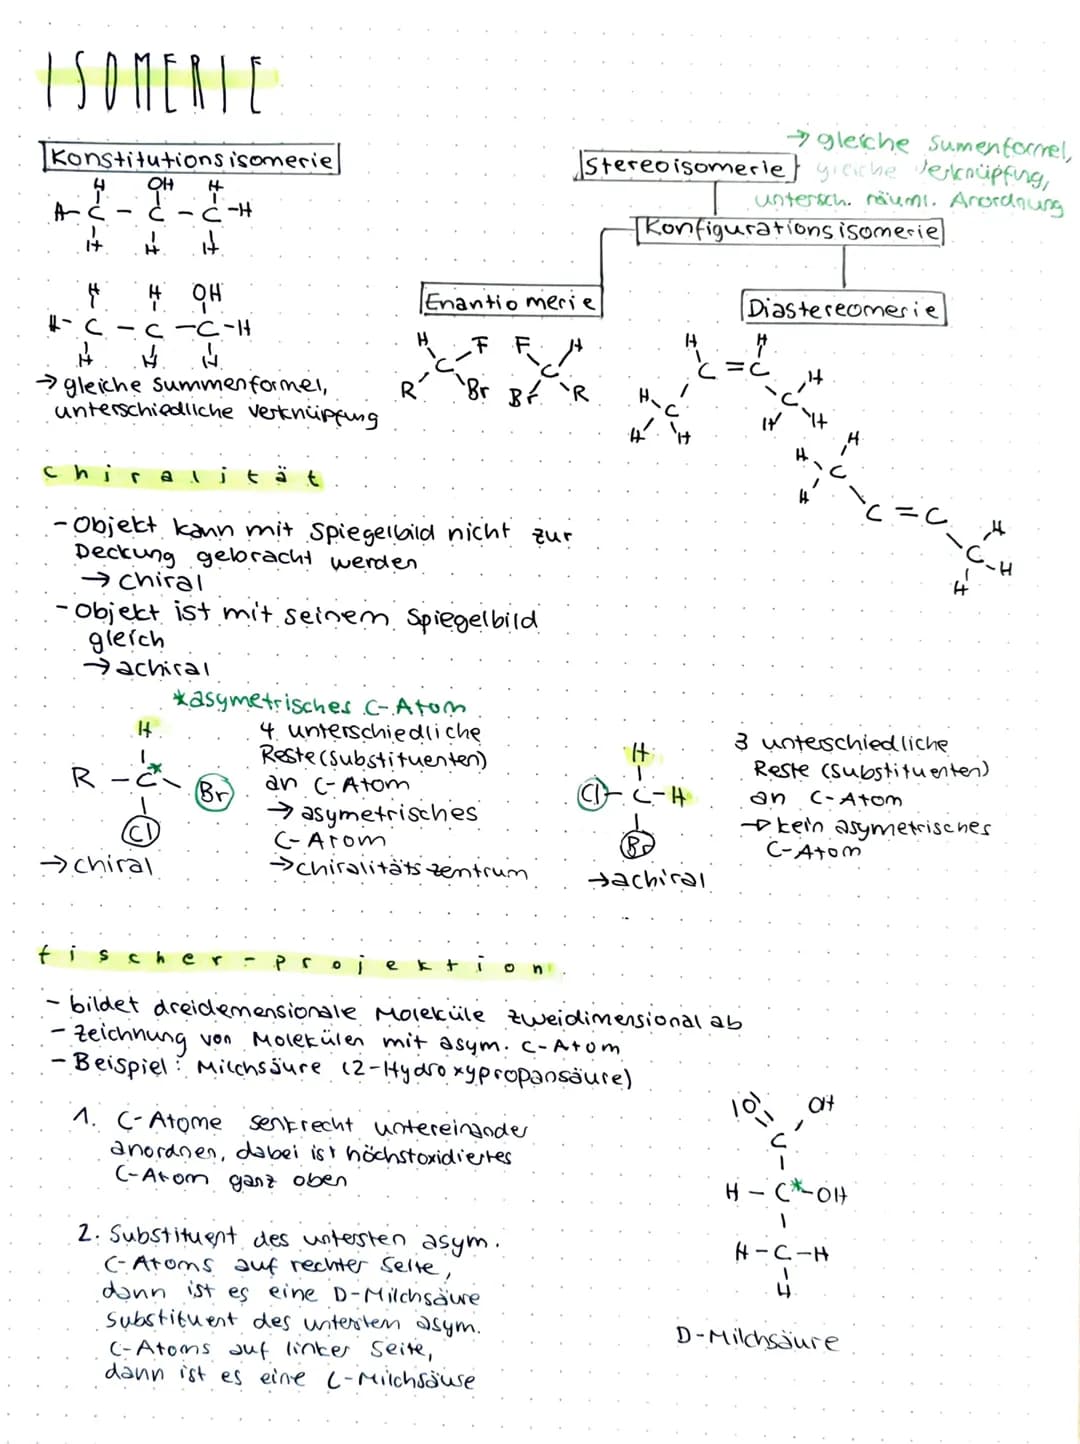 ISOMERIE
Konstitutionsisomerie
H OH H
H-C-C-C-H
H H H
H H OH
H-C-C-C-H
H H H
→ gleiche Summenformel,
unterschiedliche Verknüpfung
Stereoisomerie
→ gleiche Sumenformel,
gleiche Verknüpfung,
untersch. räuml. Anordnung
Konfigurationsisomerie
Enantiomerie
H F F H
C C
R Br Br R
Diastereomerie
H H
C=C
H C C H
H H H H
H H
H C
C=C H
C-H
H
Chiralität
- Objekt kann mit Spiegelbild nicht zur
Deckung gebracht werden
→ chiral
- Objekt ist mit seinem Spiegelbild
gleich
→ achiral
*asymetrisches C-Atom
H
R-C*
Br
Cl
→ chiral
4 unterschiedliche
Reste (Substituenten)
an C-Atom
→ asymetrisches
C-Atom
→ chiralitätszentrum
H
Cl-C-H
Br
→ achiral
3 unterschiedliche
Reste (Substituenten)
an C-Atom
→ kein asymetrisches
C-Atom
fischer-projektion
- bildet dreidemensionale Moleküle zweidimensional ab
- Zeichnung von Molekülen mit asym. C-Atom
- Beispiel: Milchsäure (2-Hydroxypropansäure)
1. C-Atome senkrecht untereinander
anordnen, dabei ist höchstoxidiertes
C-Atom ganz oben
2. Substituent des untersten asym.
C-Atoms auf rechter Seite,
dann ist es eine D-Milchsäure
Substituent des untersten asym.
C-Atoms auf linker Seite,
dann ist es eine L-Milchsäure
O OH
C
H-C*-OH
H-C-H
H
D-Milchsäure